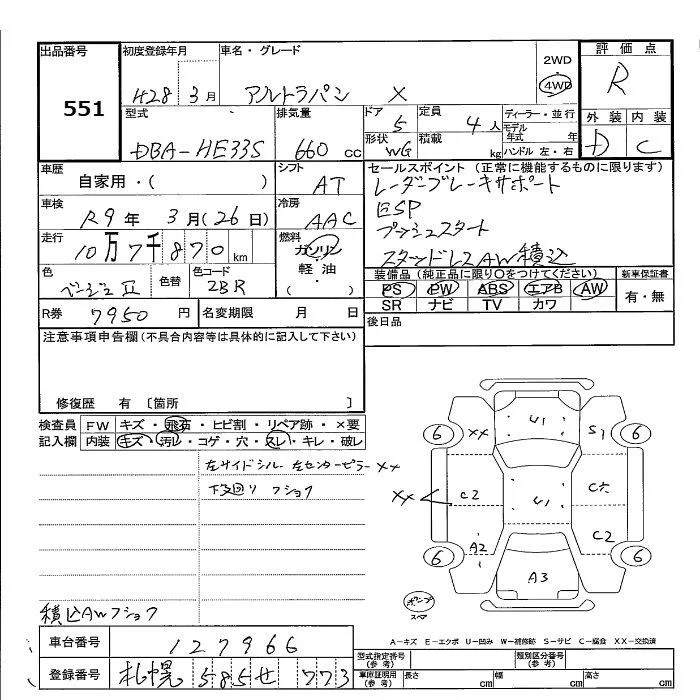 出品番号
551
初度登録年月
H28年 3月
車名・グレード
アルトラパン X
2WD
4WD
評価点
R
型式
DBA-HE33S
排気量
660 cc
ドア
5
定員
4人
形状
WG
積載
kg
ディーラー・並行
モデル年式 年
ハンドル 左・右
外装 内装
D C
車歴
自家用・( )
シフト
AT
車検
R9年 3月(26日)
冷房
AAC
走行
10万7千870km
燃料
ガソリン
軽油
( )
色
ベージュII
色替
色コード
ZBR
R券 7950円
名変期限 月 日
セールスポイント (正常に機能するものに限ります)
レーダーブレーキサポート
ESP
プッシュスタート
スタッドレスAW積込
装備品(純正品に限り○をつけてください)
PS PW ABS エアB AW
SR ナビ TV カワ
新車保証書
有・無
後日品
注意事項申告欄(不具合内容等は具体的に記入して下さい)
修復歴 有 〔箇所 〕
検査員記入欄
FW キズ・飛石・ヒビ割・リペア跡・×要
内装 キズ・汚レ・コゲ・穴・スレ・キレ・破レ
左サイドシル 左センターピラーXX
下廻り フショク
積込AWフショク
6 XX U1 S1 6
XX C2 U1 C六
A2 C2
6 A3 6
ポンプ
スペア
A-キズ E-エクボ U-凹み W-補修跡 S-サビ C-腐食 XX-交換済
車台番号
127966
登録番号
札幌 585 せ 773
型式指定番号(参考)
類別区分番号(参考)
車庫証明用(参考)
長さ cm 幅 cm 高さ cm